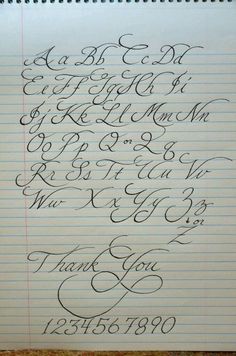 Aa Bb Cc Dd
Ee Ff Gg Hh Ii
Jj Kk Ll Mm Nn
Oo Pp Q or 2 q
Rr Ss Tt Uu Vv
Ww Xx Yy Zz
or
Z
Thank You
1234567890